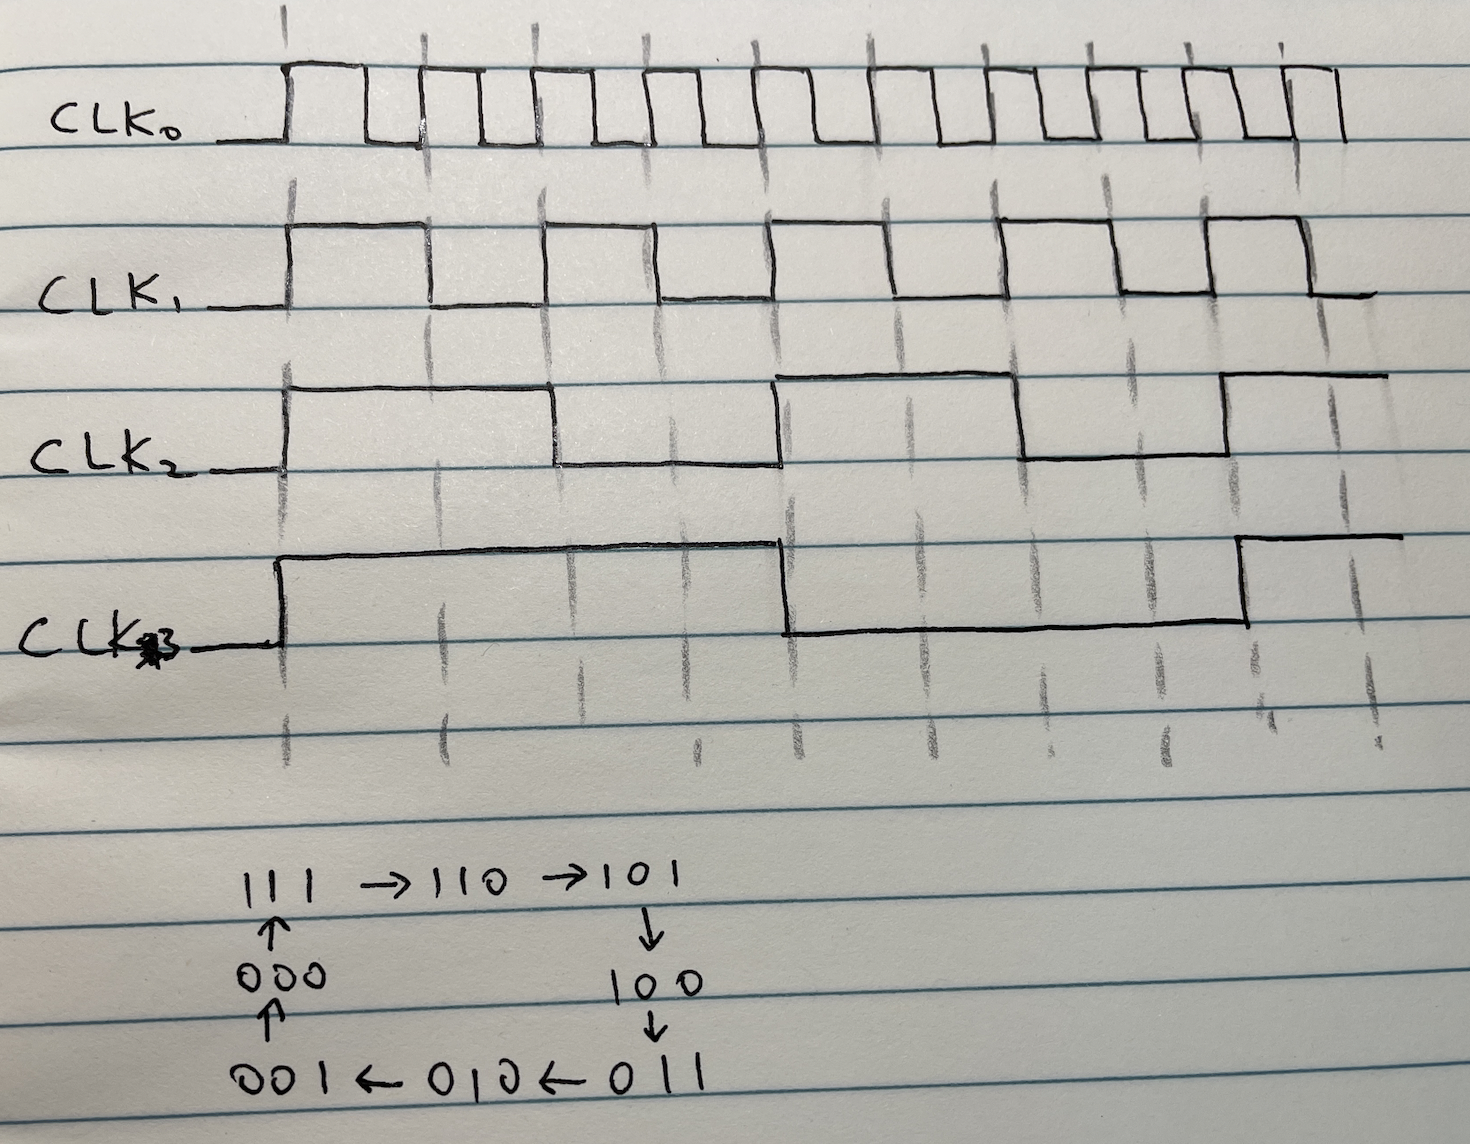 CLK₀
CLK₁
CLK₂
CLK₃
111 → 110 → 101
↑ ↓
000 100
↑ ↓
001 ← 010 ← 011